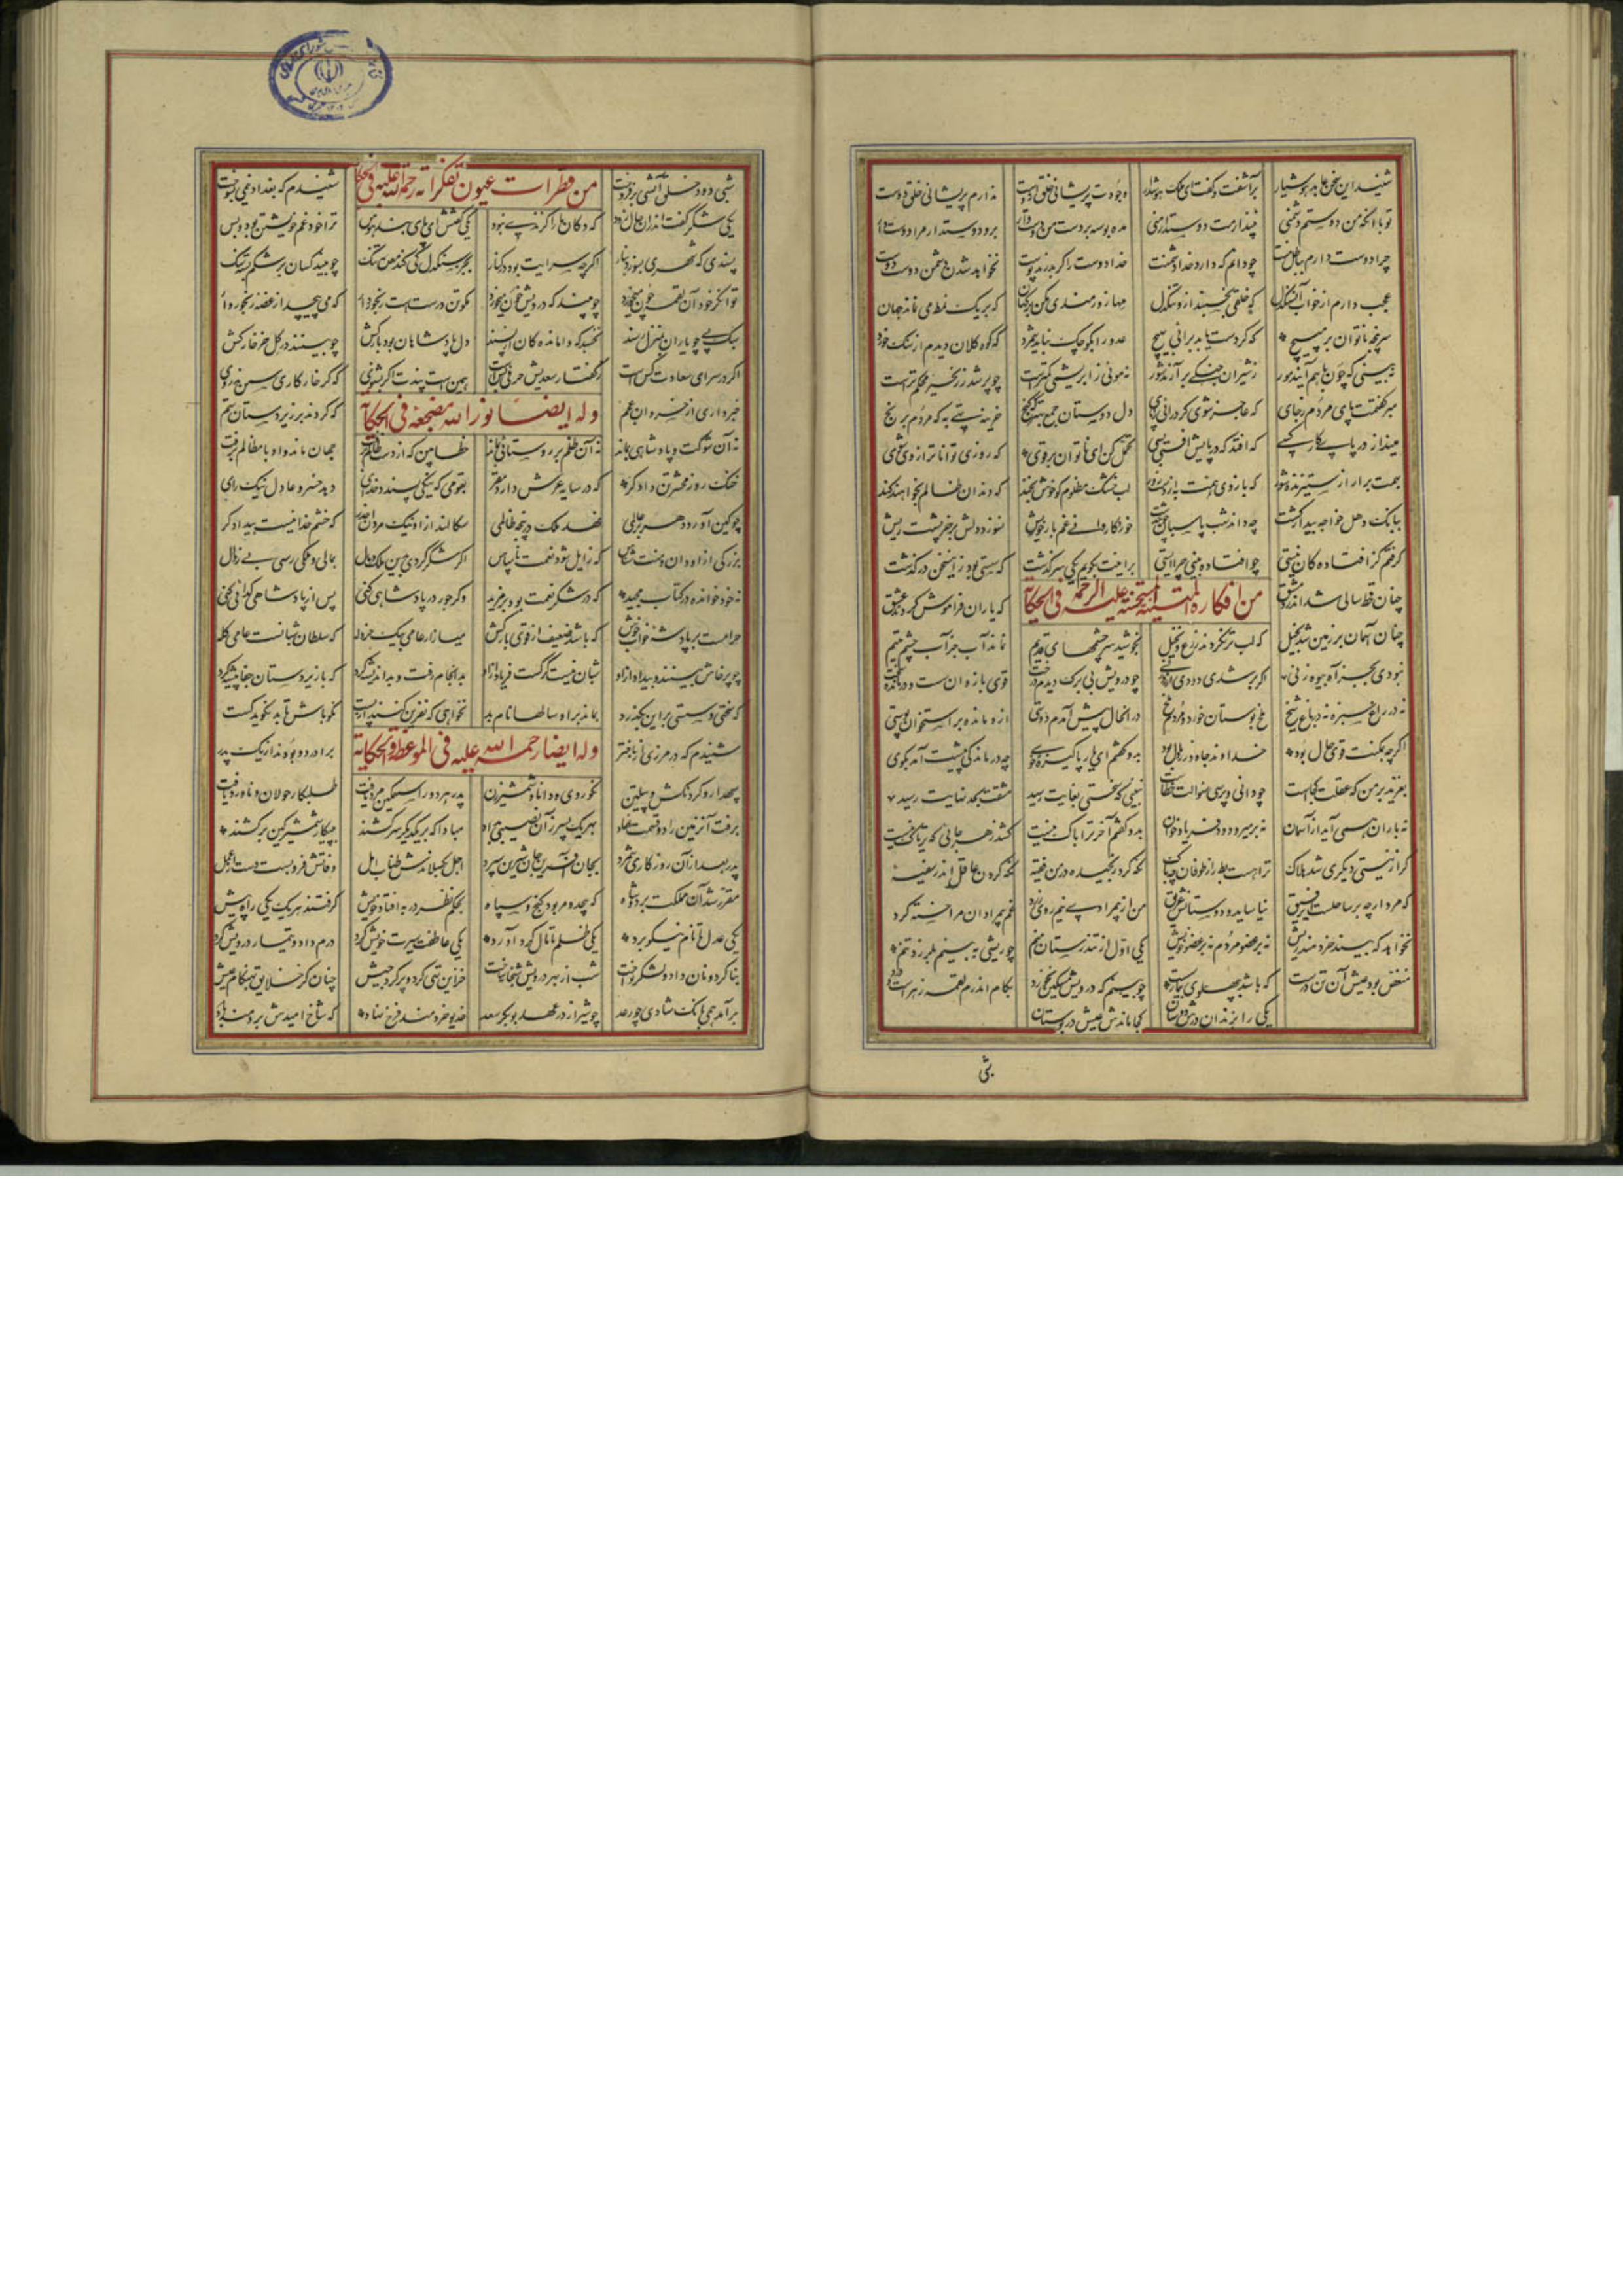 شنید این سخن عابد هوشیار برآشفت و گفت ای ملک هوشدار وجودت پریشانی خلق ازوست ندارم پریشانی خلق دوست
تو با آنکه من دوستم دشمنی نپندارمت دوستدار منی مده بوسه بر دست من دوستوار برو دوستداران مرا دوست دار
چرا دوست دارم بباطل منت چو دانم که دارد خدا دشمنت خدا دوست را گر بدرند پوست نخواهد شدن دشمن دوست دوست
عجب دارم از خواب آن سنگدل که خلقی بخسبند ازو تنگدل مها زورمندی مکن بر کهان که بر یک نمط می نماند جهان
سر پنجه ناتوان بر مپیچ که گر دست یابد برآنی بهیچ عدو را بکوچک نباید شمرد که کوه کلان دیدم از سنگ خرد
نه بینی که چون باهم آیند مور ز شیران جنگی برآرند شور نه مویی ز ابریشمی کمترست چو پر شد ز زنجیر محکم ترست
مبر گفتمت پای مردم ز جای که عاجز شوی گر درآئی ز پای دل دوستان جمع بهتر که گنج خزینه تهی به که مردم برنج
مینداز در پای کار کسی که افتد که در پایش افتی بسی تحمل کن ای ناتوان بر قوی که روزی تواناتر از وی شوی
بهمت برآر از ستیزنده شور که بازوی همت به از دست زور لب خشک مظلوم گو خوش بخند که دندان ظالم بخواهند کند
ببانک دهل خواجه بیدار گشت چه داند شب پاسبان چون گذشت خورد کاروانی غم بار خویش نسوزد دلش بر خر پشت ریش
گرفتم کز افتاده کان نیستی چو افتاده بینی چرا ایستی براینت بگویم یکی سرگذشت که سستی بود زین سخن درگذشت
من افکاره المتینة المستحسنه علیه الرحمه فی الحکایة
چنان قحط سالی شد اندر دمشق که یاران فراموش کردند عشق
چنان آسمان بر زمین شد بخیل که لب تر نکردند زرع و نخیل بخوشید سرچشمهای قدیم نماند آب جز آب چشم یتیم
نبودی بجز آه بیوه زنی اگر بر شدی دودی از روزنی چو درویش بی برک دیدم درخت قوی بازوان سست و درمانده سخت
نه در راغ سبزه نه در باغ شخ ملخ بوستان خورد و مردم ملخ در انحال پیش آمدم دوستی ازو مانده بر استخوان پوستی
اگرچه بمکنت قوی حال بود خداوند جاه و زر و مال بود بدو گفتم ای یار پاکیزه خوی چه درماندگی پیشت آمد بگوی
بغرید بر من که عقلت کجاست چو دانی و پرسی سوالت خطاست نبینی که سختی بغایت رسید مشقت بحد نهایت رسید
نه باران همی آید از آسمان نه بر میرود دود فریاد خوان بدو گفتم آخر ترا باک نیست کشد زهر جائی که تریاک نیست
گر از نیستی دیگری شد هلاک ترا هست بط را ز طوفان چه باک نگه کرد رنجیده در من فقیه نگه کردن عاقل اندر سفیه
که مرد ارچه بر ساحلست ای رفیق نیاساید و دوستانش غریق من از بی مرادی نیم روی زرد غم بی مرادان مرا خسته کرد
نخواهد که بیند خردمند ریش نه بر عضو مردم نه بر عضو خویش یکی اول از تندرستان منم چو ریشی به بینم بلرزد تنم
منغض بود عیش آن تن درست که باشد به پهلوی بیمار سست چو بینم که درویش مسکین نخورد بکام اندرم لقمه زهرست و درد
یکی را بزندان درش دوستان کجا ماندش عیش در بوستان
شبی
شبی دود خلق آتشی برفروخت شنیدم که بغداد نیمی بسوخت
من قطرات عیون تفکراته رحمة الله علیه فی الحکایة
یکی شکر گفت اندران حال زود که دکان ما را گزندی نبود یکی گفتش ای های بند هوس ترا خود غم خویشتن بود و بس
پسندی که شهری بسوزد بنار اگرچه سرایت بود در کنار بجز سنگدل کی کند معده تنک چو بیند کسان بر شکم بسته سنک
توانگر خود آن لقمه چون میخورد چو بیند که درویش خون میخورد مگو تن درست است رنجوردار که می پیچد از غصه رنجوروار
سبک پی چو یاران بمنزل رسند نخسبد که وامانده کان از پسند دل پادشاهان بود بارکش چو بینند در گل خر خارکش
اگر در سرای سعادت کس است ز گفتار سعدیش حرفی بس است همین است پندت اگر بشنوی که گر خار کاری سمن ندروی
وله ایضا نور الله مضجعه فی الحکایة
خبر داری از خسروان عجم که کردند بر زیردستان ستم
نه آن شوکت و پادشاهی بماند نه آن ظلم بر روستائی بماند خطا بین که از دست ظالم برفت جهان ماند و او با مظالم برفت
خنک روز محشر تن دادگر که در سایه عرش دارد مقر بقومی که نیکی پسندد خدای دهد خسرو عادل نیک رای
چو کین آورد دهر بر عالمی نهد ملک در پنجه ظالمی سگالند از او نیک مردان حذر که خشم خداییست بیدادگر
بزرگی ازو دان و منت شناس که زایل شود نعمت ناسپاس اگر شکر کردی برین ملک و مال بمالی و ملکی رسی بی زوال
نه خود خوانده در کتاب مجید که در شکر نعمت بود بر مزید وگر جور در پادشاهی کنی پس از پادشاهی گدائی کنی
حرامست بر پادشه خواب خوش که باشد ضعیف از قوی بارکش میازار عامی بیک خردله که سلطان شبانست عامی گله
چو پرخاش بینند و بیداد ازو شبان نیست گرگست فریاد ازو بدانجام رفت و بد اندیشه کرد که با زیردستان جفا پیشه کرد
که سختی و سستی براین بگذرد بماند براو سالها نام بد نخواهی که نفرین کنند از پست نکو باش تا بد نگوید کست
وله ایضا رحمه الله علیه فی الموعظة والحکایة
شنیدم که در مرزی از باختر برادر دو بودند از یک پدر
سپهدار و گردنکش و پیلتن نکو روی و دانا و شمشیرزن پدر هر دو را سهمگین مرد یافت طلبکار جولان و ناورد یافت
برفت آن زمین را دو قسمت نهاد بهر یک پسر زان نصیبی بداد مبادا که بر یکدیگر سر کشند به پیکار شمشیر کین برکشند
پدر بعد ازان روزگاری شمرد بجان آفرین جان شیرین سپرد اجل بگسلاندش طناب امل وفاتش فرو بست دست عمل
مقرر شد آن مملکت بر دو شاه که بیحد و مر بود گنج و سپاه بحکم نظر در به افتاد خویش گرفتند هر یک یکی راه پیش
یکی عدل تا نام نیکو برد یکی ظلم تا مال گرد آورد یکی عاطفت سیرت خویش کرد درم داد و تیمار درویش کرد
بنا کرد و نان داد و لشکر نواخت شب از بهر درویش شبخانه ساخت خزاین تهی کرد و پر کرد جیش چنان کز خلایق بهنگام عیش
برآمد همی بانک شادی چو رعد چو شیراز در عهد بوبکر سعد خدیو خردمند فرخ نهاد که شاخ امیدش برومند باد